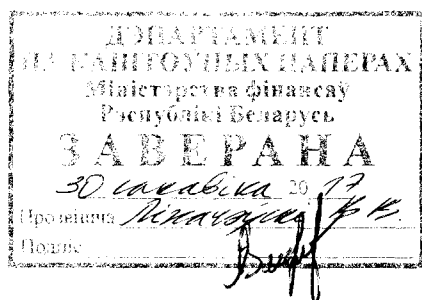 ДЭПАРТАМЕНТ
ПА КАШТОЎНЫХ ПАПЕРАХ
Міністэрства фінансаў
Рэспублікі Беларусь
ЗАВЕРАНА
30 сакавіка 2017
Прозвішча В.В.
Подпіс